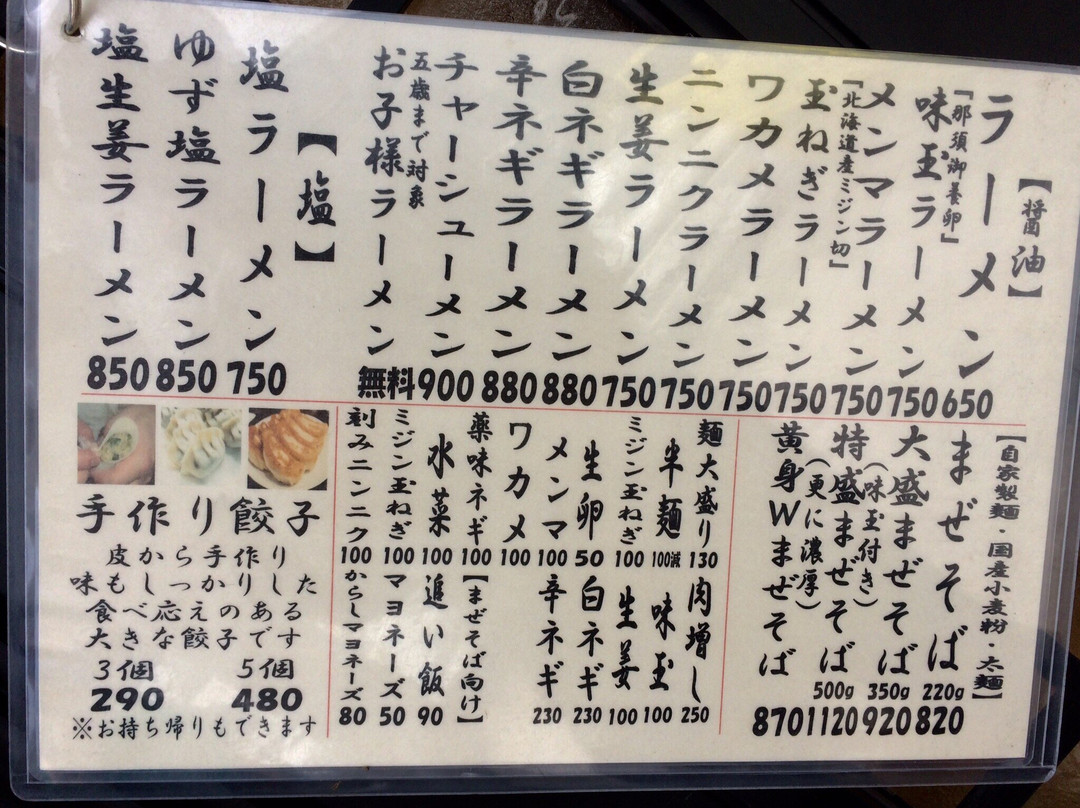 【醤油】
ラーメン 650
味玉ラーメン 750
「那須御養卵」
メンマラーメン 750
玉ねぎラーメン 750
「北海道産ミジン切」
ワカメラーメン 750
ニンニクラーメン 750
生姜ラーメン 750
白ネギラーメン 880
辛ネギラーメン 880
チャーシューメン 900
お子様ラーメン 無料
五歳まで対象
【塩】
塩ラーメン 750
ゆず塩ラーメン 850
塩生姜ラーメン 850
【自家製麺・国産小麦粉・太麺】
まぜそば 220g 820
大盛まぜそば 350g 920
(味玉付き)
特盛まぜそば 500g 1120
(更に濃厚)
黄身Wまぜそば 870
麺大盛り 130
半麺 100減
ミジン玉ねぎ 100
生卵 50
メンマ 100
ワカメ 100
薬味ネギ 100
水菜 100
ミジン玉ねぎ 100
刻みニンニク 100
肉増し 250
味玉 100
生姜 100
白ネギ 230
辛ネギ 230
【まぜそば向け】
追い飯 90
マヨネーズ 50
からしマヨネーズ 80
手作り餃子
皮から手作り
味もしっかりした
食べ応えのある
大きな餃子です
3個 5個
290 480
※お持ち帰りもできます